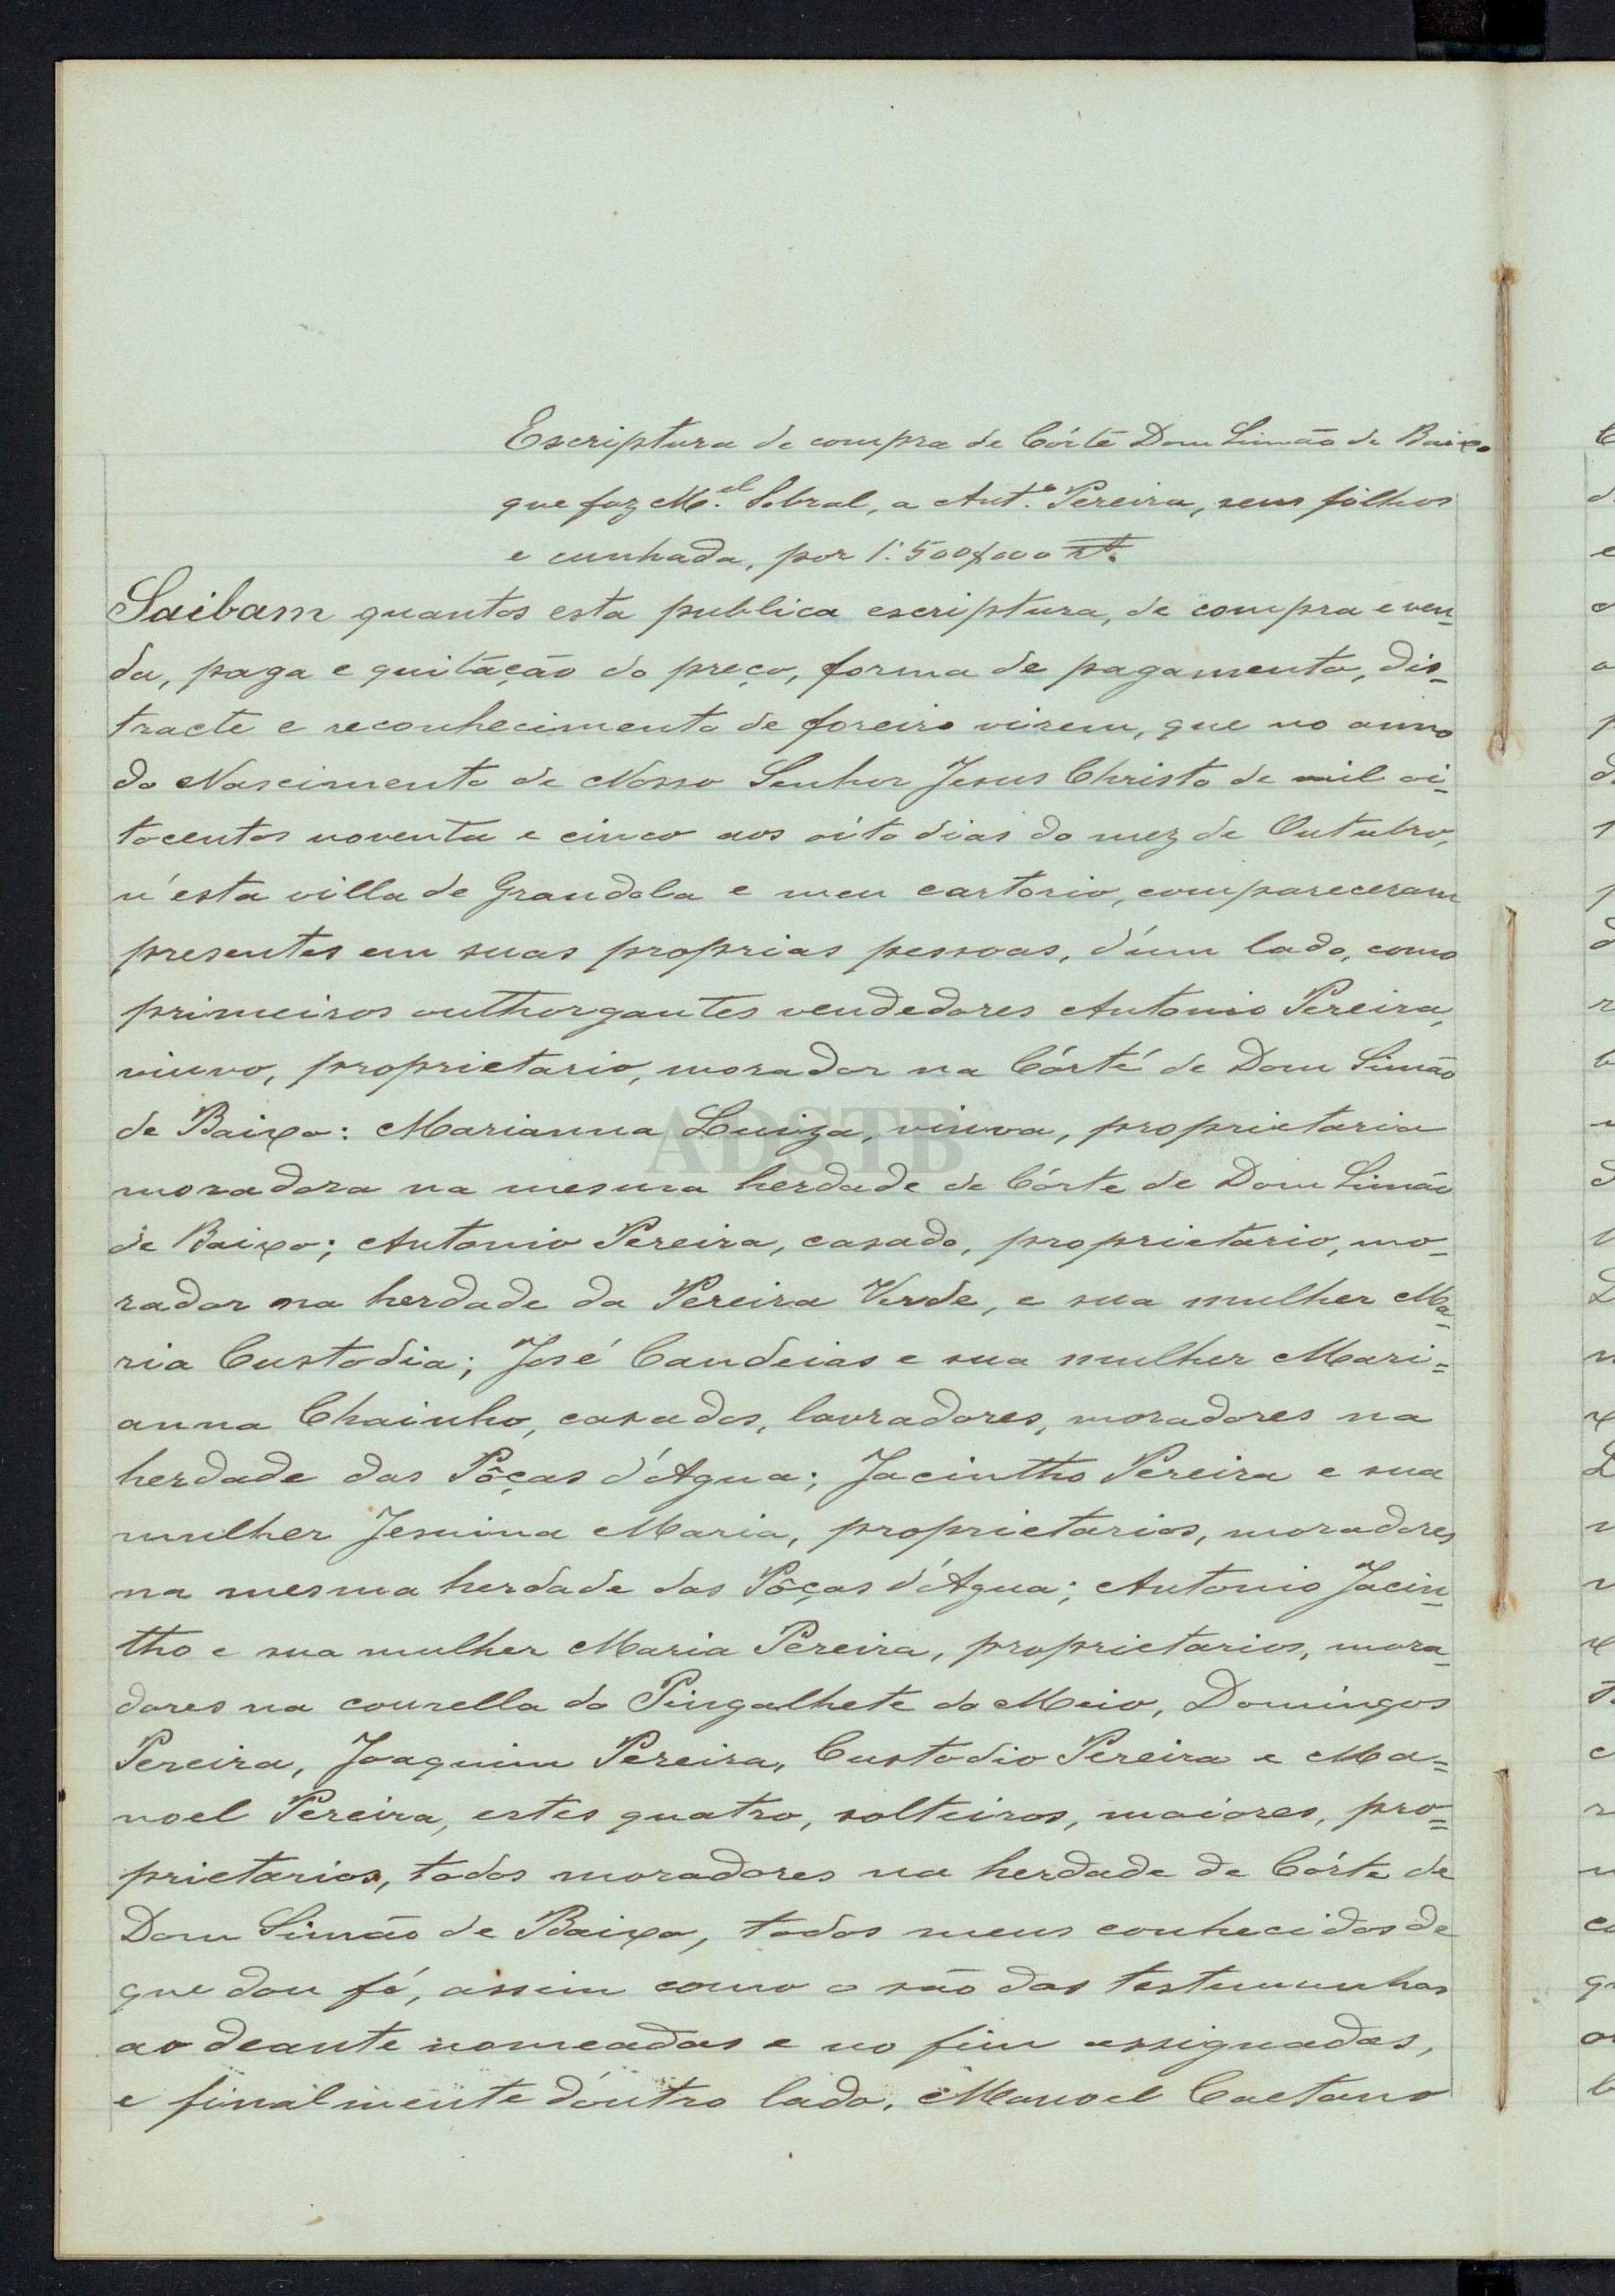 Escriptura de compra de Córte Dom Simão de Baixo
que faz M.el Sobral, a Ant.o Pereira, seus filhos
e cunhada, por 1:500$000 rs.
Saibam quantos esta publica escriptura, de compra e ven-
da, paga e quitáção do preço, forma de pagamento, dis-
tracte e reconhecimento de foreiro virem, que no anno
do Nascimento de Nosso Senhor Jesus Christo de mil oi-
tocentos noventa e cinco aos oito dias do mez de Outubro,
n'esta villa de Grandola e meu cartorio, compareceram
presentes em suas proprias pessoas, d'um lado, como
primeiros outhorgantes vendedores Antonio Pereira,
viuvo, proprietario, morador na Córté de Dom Simão
de Baixo: Marianna Luiza, viuva, proprietaria
moradora na mesma herdade de Córte de Dom Simão
de Baixo; Antonio Pereira, casado, proprietario, mo-
rador na herdade da Pereira Verde, e sua mulher Ma-
ria Custodia; José Candeias e sua mulher Mari=
anna Chainho, casados, lavradores, moradores na
herdade das Pôças d'Agua; Jacintho Pereira e sua
mulher Jesuina Maria, proprietarios, moradores
na mesma herdade das Pôças d'Agua; Antonio Jacin-
tho e sua mulher Maria Pereira, proprietarios, mora-
dores na courella do Pingalhete do Meio, Domingos
Pereira, Joaquim Pereira, Custodio Pereira e Ma=
noel Pereira, estes quatro, solteiros, maiores, pro=
prietarios, todos moradores na herdade de Córte de
Dom Simão de Baixo, todos meus conhecidos de
que dou fé, assim como o são das testemunhas
ao deante nomeadas e no fim assignadas,
e finalmente d'outro lado, Manoel Caetano
ADSTB